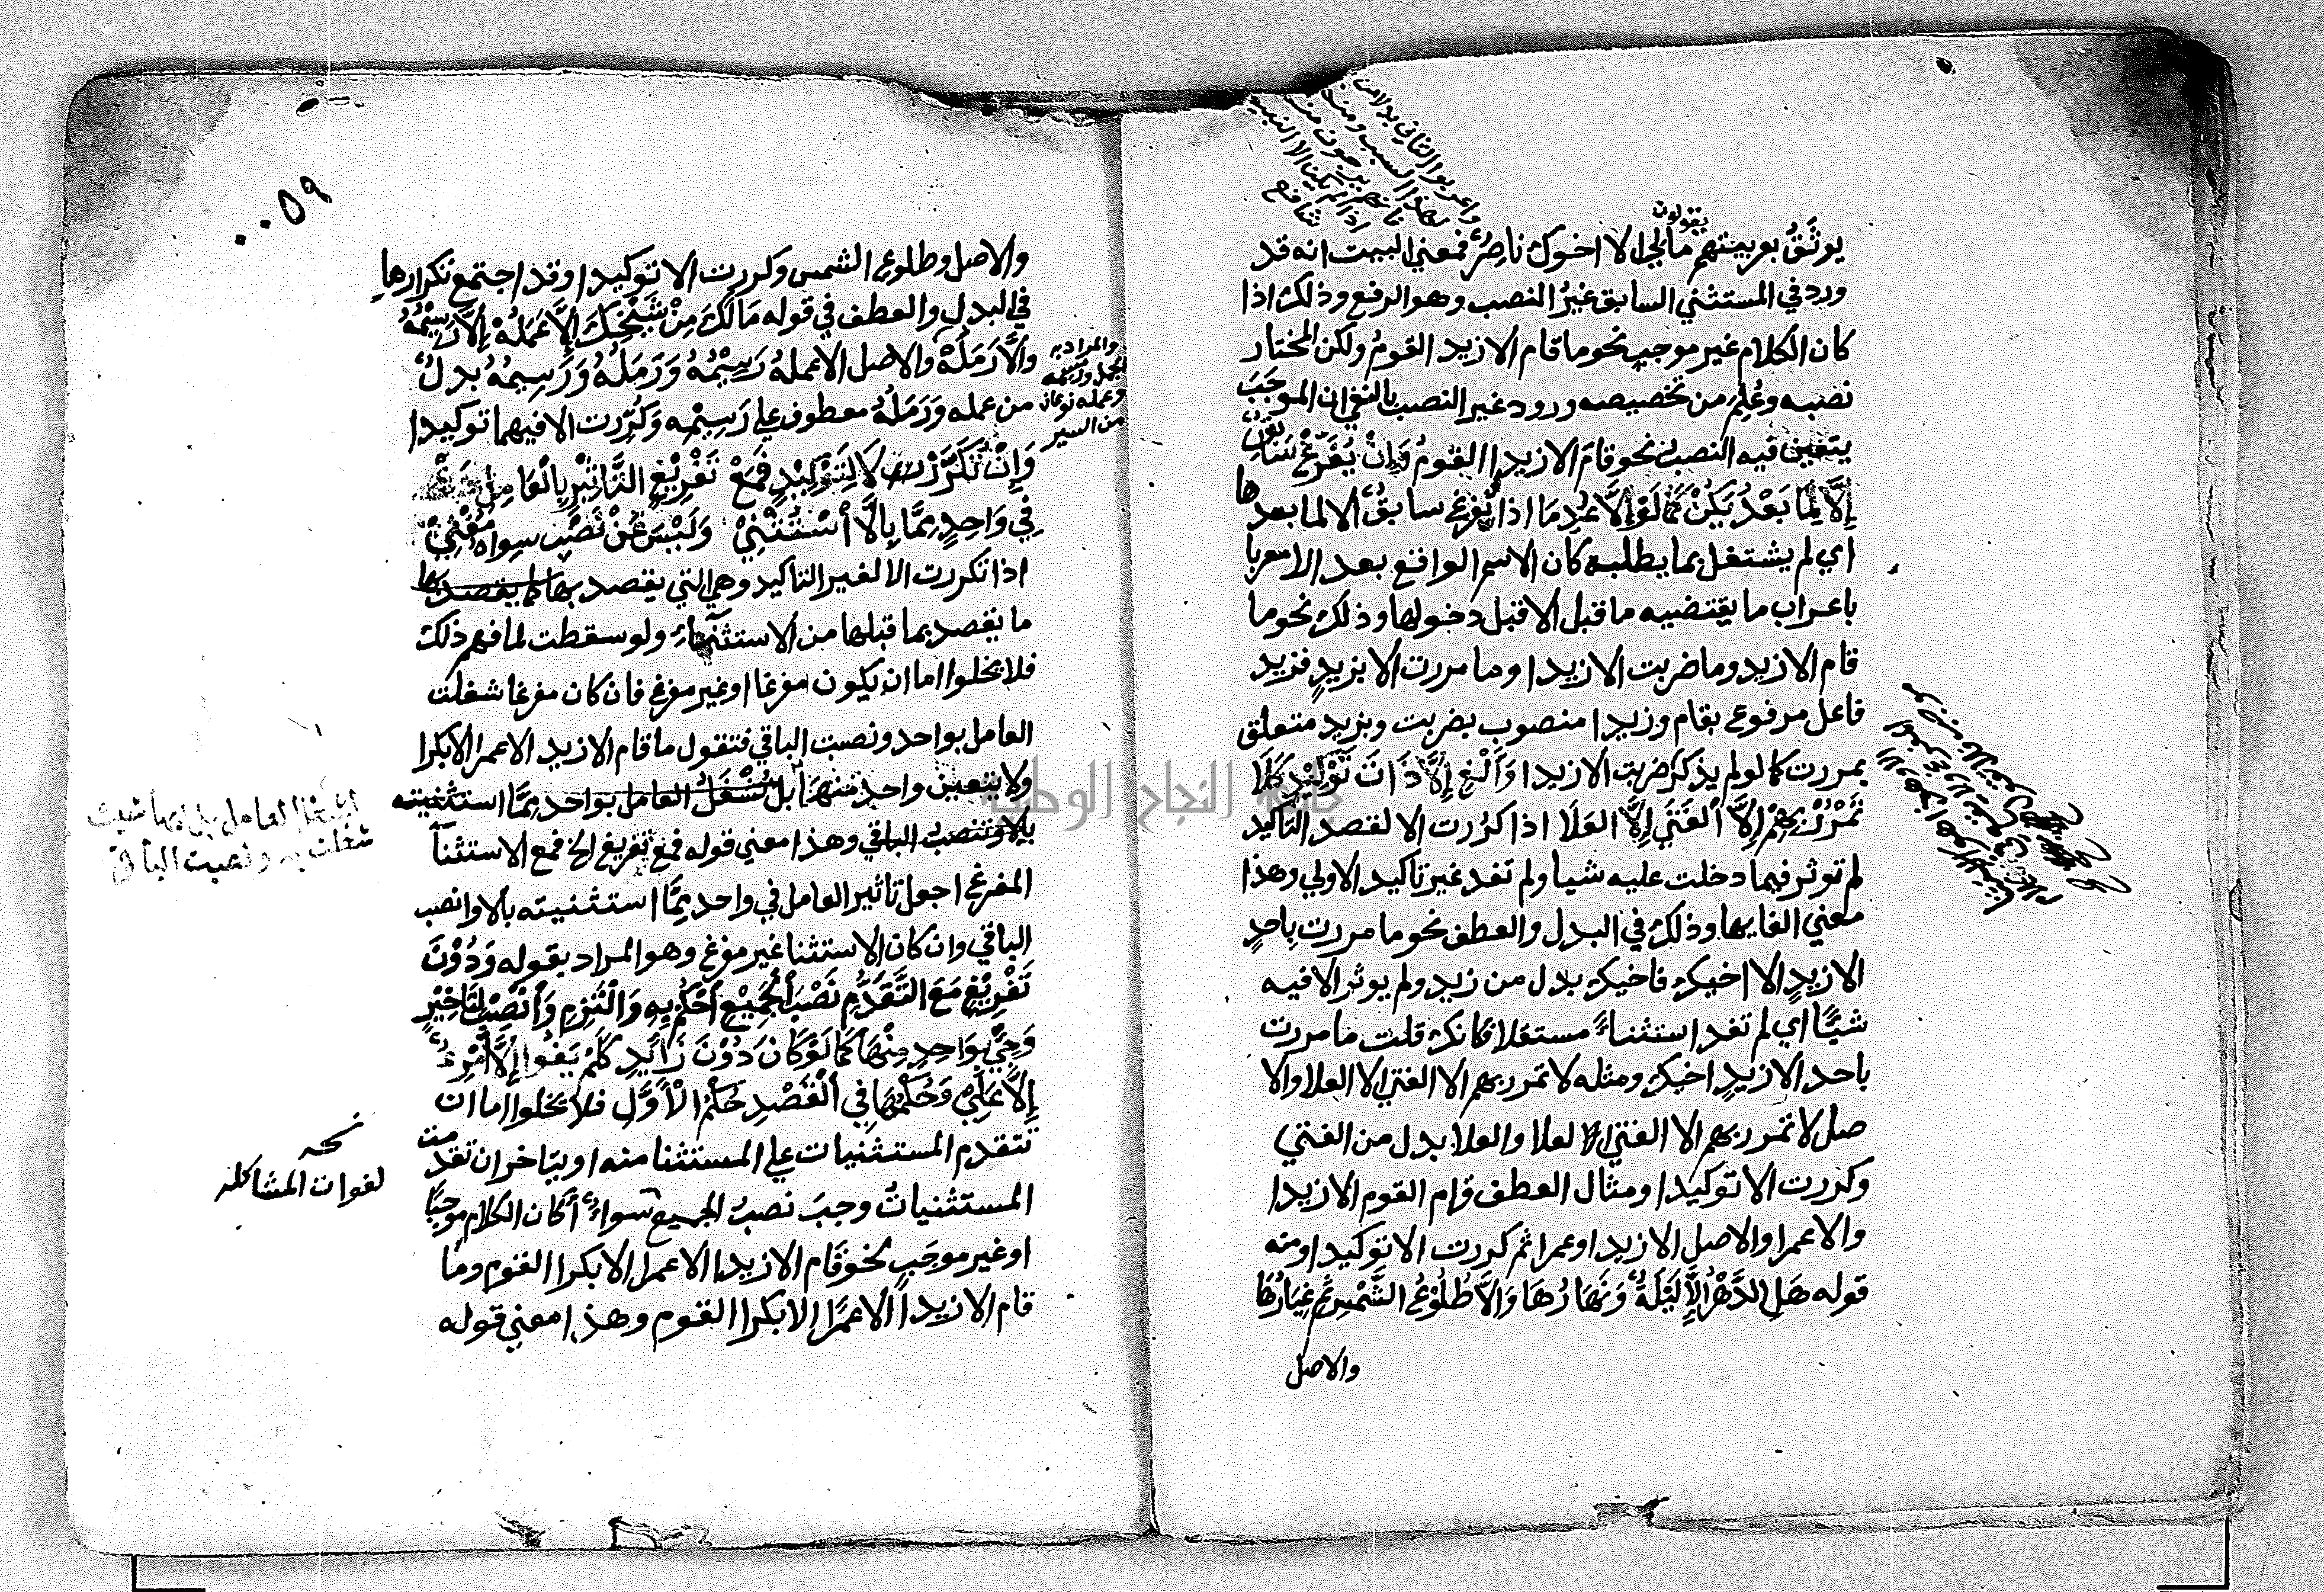 يقولون
يوثَقُ بعربيتهم مالي الا اخوك ناصِرٌ فمعني البيت انه قد
ورد في المستثني السابق غيرُ النصب وهو الرفع وذلك اذا
كان الكلام غير موجب نحو ما قام الا زيد القومُ ولكن المختار
نصبه وعُلِم من تخصيصه ورود غير النصب بالنفي ان الموجَبَ
يتعين فيه النصبُ نحو قام الا زيدا القومُ وَاِنْ يُفَرَّغْ سَابِقٌ
إِلَّا لِمَا بَعْدُ يَكُنْ كَمَا لَوْ اِلَّا عُدِمَا اذا تفرغ سابقُ الا لما بعدها
اي لم يشتغل بما يطلبه كان الاسم الواقع بعد الا معربا
باعراب ما يقتضيه ما قبل الا قبل دخولها وذلك نحو ما
قام الا زيد وما ضربت الا زيدا وما مررت الا بزيدٍ فزيد
فاعل مرفوع بقام وزيدا منصوب بضربت وبزيد متعلق
بمررت كما لو لم يذكر ضربت الا زيدا وَأَلْغِ إِلَّا ذَاتَ تَوْكِيْدٍ كَلَا
تَمْرُرْ بِهِمْ إِلَّا الْفَتَي إِلَّا العَلَا اذا كرّرت الا لقصد التاكيد
لم توثر فيما دخلت عليه شيا ولم تفد غير تاكيد الاولي وهذا
معني الغايها وذلك في البدل والعطف نحو ما مررت باحدٍ
الا زيدٍ الا اخيك فاخيك بدل من زيد ولم يوثر الا فيه
شيًا اي لم تفد استثناءً مستقلا فكانك قلت ما مررت
باحد الا زيدٍ اخيك ومثله لا تمرر بهم الا الفتي الا العلا والا
صل لا تمرر بهم الا الفتي العلا والعلا بدل من الفتي
وكررت الا توكيدا ومثال العطف قام القوم الا زيدا
والا عمرا والاصل الا زيدا وعمرا ثم كررت الا توكيدا ومنه
قوله هَلِ الدَّهْرُ إِلَّا لَيْلَةٌ وَنَهَارُهَا وَاِلَّا طُلُوْعُ الشَّمْسِ ثُمَّ غِيَارُهَا
والاصل
٠٠٥٩
والاصل وطلوع الشمس وكررت الا توكيدا وقد اجتمع تكرارها
في البدل والعطف في قوله مَالَكَ مِنْ شَيْخِكَ إِلَّا عَمَلُهْ إِلَّا رَسِيْمُهُ
وَاِلَّا رَمَلُهْ والاصل الا عمله رَسِيْمُهُ وَرَمَلُهُ وَرَسِيمُهُ بدلٌ
من عمله وَرَمَلُهُ معطوف علي رَسِيْمِه وَكُرِّرت الا فيهما توكيدا
والمراد به
الجمل ورسيمه
وعمله نوعان
من السير
وَإِنْ تُكَرَّرْ لَا لِتَوْكِيْدٍ فَمَعْ تَفْرِيْغٍ التَّاثِيْرَ بِالْعَامِلِ دَعْ
فِي وَاحِدٍ مِمَّا بِالَّا أَسْتُثْنِيْ وَلَيْسَ عَنْ نَصْبِ سِواهُ مُغْنِيْ
اذا تكررت الا لغير التاكيد وهي التي يقصد بها
ما يقصد بما قبلها من الاستثناء ولو سقطت لما فهم ذلك
فلا يخلوا اما ان يكون مفرغا او غير مفرغ فان كان مفرغا شغلت
العامل بواحد ونصبت الباقي فتقول ما قام الا زيد الا عمرا الا بكرا
ولا يتعين واحد منها بل تُشْغَلُ العامل بواحد مِمَّا استثنيته
وتنصب الباقي وهذا معني قوله فمع تفريغ الخ فمع الاستثناء
المفرغ اجعل تاثير العامل في واحد مِمَّا استثنيته بالا وانصب
الباقي وان كان الاستثنا غير مفرغ وهو المراد بقوله وَدُوْنَ
تَفْرِيْغٍ مَعَ التَّقَدُّمِ نَصْبَ الْجَمِيْعِ أحْكُمْ بِهِ وَالْتَزِمِ وَأنْصِبْ لِتَاخِيْرٍ
وَجِيْ بِوَاحِدٍ مِنْهَا كَمَا لَوْ كَانَ دُوْنَ زَائِدِ كَلَمْ يَفُوا إِلَّا أمْرُؤٌ
إِلَّا عَلِيْ وَحُكْمُهَا فِي الْقَصْدِ حُكْمُ الْأَوَّلِ فلا يخلوا اما ان
تتقدم المستثنيات علي المستثنا منه او يتاخر ان تقدمت
المستثنياتُ وجبَ نصبُ الجميع سواءٌ أكان الكلام موجبًا
او غير موجَبٍ نحو قام الا زيدا الا عمرا الا بكرا القوم وما
قام الا زيداً الا عمرًا الا بكرا القوم وهذا معني قوله
العامل بل ايها شيت
شغلت به ونصبت الباقي